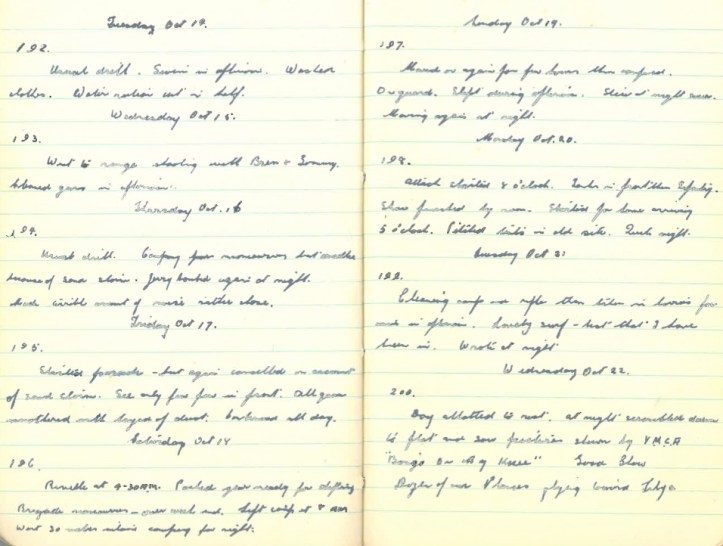 Tuesday Oct 14.
192.
Usual drill. Swim in afternoon. Washed
clothes. Water ration cut in half.
Wednesday Oct 15.
193.
Went to range shooting with Bren & Tommy.
guns in afternoon.
Thursday Oct. 16
194.
Usual drill. Company manoeuvres but another
of sand storm. Jerry bombed again at night.
Made awful amount of noise rather close.
Friday Oct 17.
195.
Started parade - but again cancelled on account
of sand storm. See only few feet in front. All gear
smothered with layer of dust. all day.
Saturday Oct 18
196.
Reveille at 4-30 A.M. Packed gear ready for
Brigade manoeuvres - over week end. Left camp at 8 AM
Went 30 miles camping for night.
Sunday Oct 19.
197.
Moved on again for few hours then camped.
On guard. Slept during afternoon. at night
Moving again at night.
Monday Oct. 20.
198.
Attack started 8 o'clock. Tanks in front then Infantry.
Show finished by noon. Started for home arriving
5 o'clock. Pitched tents in old site. night.
Tuesday Oct 21
199.
Cleaning camp and rifles then taken in lorries for
swim in afternoon. Lovely surf - best that I have
been in. Wrote at night
Wednesday Oct 22.
200.
Day allotted to rest. At night scrambled down
to flat and saw pictures shown by Y.M.C.A
"Banjo On My Knee" Good Show
Dozens of our Planes flying toward Libya